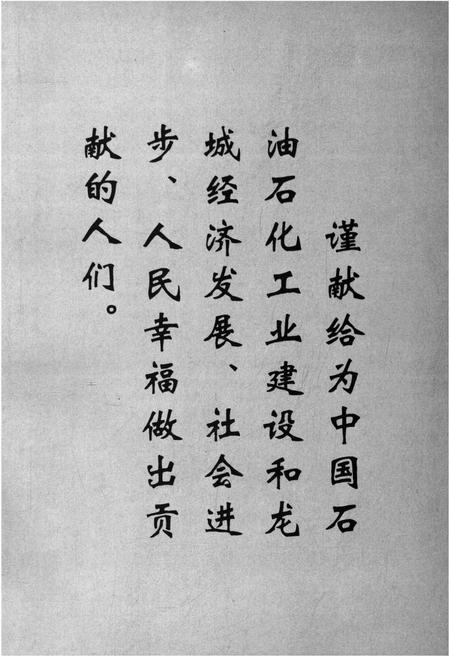 谨献给为中国石
油石化工业建设和龙
城经济发展、社会进
步、人民幸福做出贡
献的人们。